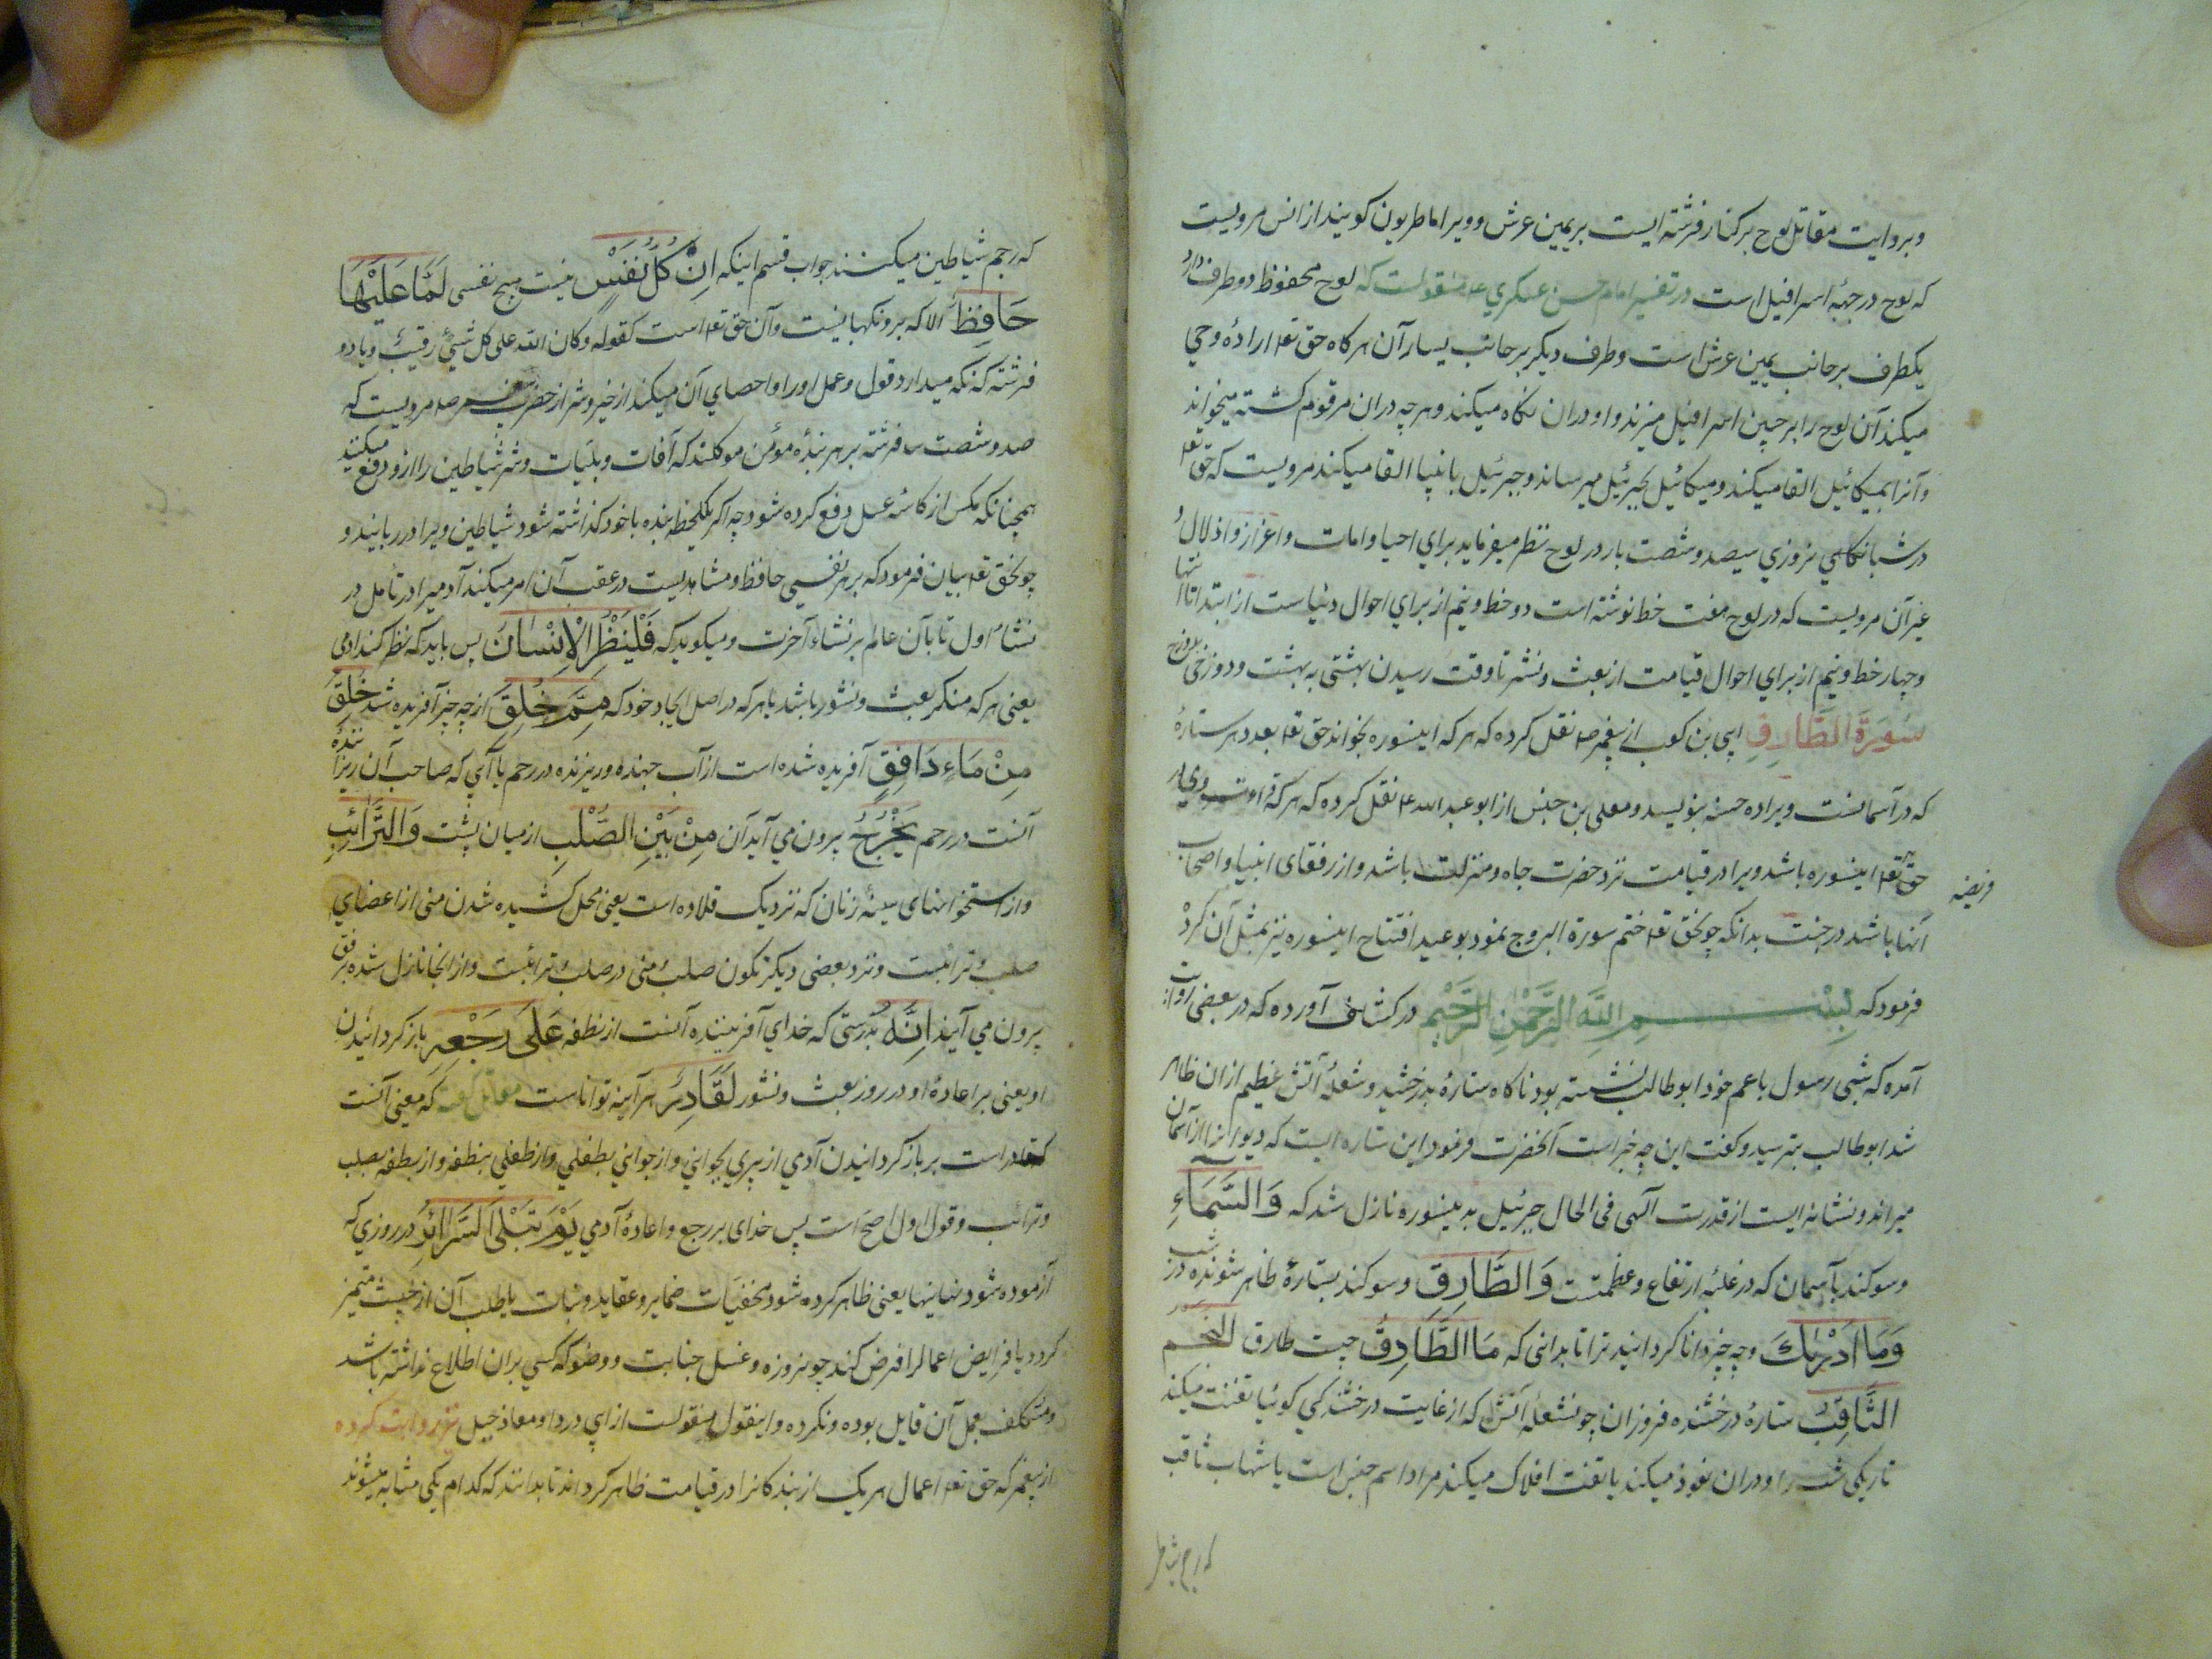 وبروایت مقاتل لوح برکنار فرشته ایست بریمین عرش وویرا ماطریون کویند از انس مرویست
که لوح در جبهٔ اسرافیل است در تفسیر امام حسن عسکري ع منقولست که لوح محفوظ دو طرف دارد
یکطرف بر جانب یمین عرش است وطرف دیکر بر جانب یسار آن هرکاه حق تعا ارادهٔ وحي
میکند آن لوح را بر جبین اسرافیل میزند واو دران نکاه میکند وهرچه دران مرقوم کشته میخواند
وآنرا بمیکائیل القا میکند ومیکائیل بجبرئیل میرساند وجبرئیل بانبیا القا میکند مرویست که حق تعا
در شبانکاهي وروزي سیصد وشصت بار در لوح نظر میفرماید براي احیا وامات واعزاز واذلال و
غیر آن مرویست که در لوح هفت خط نوشته است دو خط ونیم از براي احوال دنیاست از ابتدا تا انتها
وچهار خط ونیم از براي احوال قیامت از بعث ونشر تا وقت رسیدن بهشتی به بهشت ودوزخی بدوزخ
سُورَةُ الطَّارِقِ ابي بن کعب از پیغمبر ص نقل کرده که هرکه اینسوره بخواند حق تعا بعدد هر ستارهٔ
که در آسمانست ویرا ده حسنه بنویسد ومعلی بن خنیس از ابو عبد الله ع نقل کرده که هرکه قراءت وي در
فریضه
حق تعا اینسوره باشد ویرا در قیامت نزد حضرت جاه ومنزلت باشد واز رفقای انبیا واصحاب
آنها باشد در جنت بدانکه چونحق تعا ختم سورة البروج نمود بوعید افتتاح اینسوره نیز بمثل آن کرد
فرمود که بِسْمِ اللّٰهِ الرَّحْمٰنِ الرَّحِيمِ در کشاف آورده که در بعضی روایت
آمده که شبی رسول با عم خود ابو طالب نشسته بود ناکاه ستارهٔ بدرخشید وشعلهٔ آتش عظیم ازان ظاهر
شد ابو طالب بترسید وکفت این چه خبر است آنحضرت فرمود این ستاره ایست که دیوانرا از آسمان
میراند ونشانه ایست از قدرت الهی فی الحال جبرئیل به بینسوره نازل شد که وَالسَّمَاءِ
وسوکند بآسمان که در غلبهٔ ارتفاع وعظمتست وَالطَّارِقِ وسوکند بستارهٔ ظاهر شونده در شب
وَمَا أَدْرٰىكَ وچه چیز دانا کردانید ترا تا بدانی که مَا الطَّارِقُ چیست طارق النجم
الثَّاقِبُ ستارهٔ درخشنده فروزان چو نشعلهٔ آتش که از غایت درخشندکي کوئیا تقنت میکند
تاریکی شب را ودران نفوذ میکند یا تقنت افلاک میکند مراد اسم جنس است یا شهاب ثاقب
که رجم شیاطین
که رجم شیاطین میکنند جواب قسم اینکه اِنْ كُلُّ نَفْسٍ نیست هیچ نفسی لَمَّا عَلَيْهَا
حَافِظٌ الا که برو نکهبانیست وآن حق تعا است کقوله وکان الله علی کل شیٔ رقیبًا ویا دو
فرشته که نکه میدارد قول وعمل اورا واحصاي آن میکند از خیر وشر از حضرت پیغمبر ص مرویست که
صد وشصت فرشته بر هر بندهٔ مؤمن موکلند که آفات وبلیات وشر شیاطین را ازو دفع میکنند
همچنانکه مکس از کاسهٔ عسل دفع کرده شود چه اکر یکلحظه بنده باخود کذاشته شود شیاطین ویرا در ربایند و
چونحق تعا بیان فرمود که بر هر نفسي حافظ ومشاهدیست در عقب آن امر میکند آدمیرا در تأمل در
نشاء اول تا بآن عالم بر نشاء آخرت ومیکوید که فَلْيَنْظُرِ الْاِنْسَانُ پس باید که نظر کند ادمی
یعنی هرکه منکر بعث ونشور باشد یا هرکه در اصل ایجاد خود که مِمَّ خُلِقَ از چه چیز آفریده شد خُلِقَ
مِنْ مَاءٍ دَافِقٍ آفریده شده است از آب جهنده وریزنده در رحم یا آبي که صاحب آن ریزاننده
آنست در رحم يَخْرُجُ بیرون مي آید آن مِنْ بَيْنِ الصُّلْبِ از میان پشت وَالتَّرَائِبِ
واز استخوانهای سینهٔ زنان که نزدیک قلاده است یعنی محل کشیده شدن منی از اعضاي
صلب وترائبست ونزد بعضی دیکر تکون صلب منی در صلب وترائبست واز انجا نازل شده برفق
بیرون مي آیند اِنَّهُ بدرستی که خداي آفریننده آنست از نطفه عَلٰى رَجْعِهِ باز کردانیدن
او یعنی بر اعادهٔ او در روز بعث ونشور لَقَادِرٌ هر آینه تواناست مقاتل کفته که معنی آنست
که قادر است بر باز کردانیدن آدمي از پیري بجوانی واز جوانی بطفلي واز طفلي بنطفه واز نطفه بصلب
وترائب وقول اول اصح است پس خدای بر رجع واعادهٔ آدمي يَوْمَ تُبْلَى السَّرَائِرُ در روزي که
آزموده شود نهانیها یعنی ظاهر کرده شود مخفیات ضمایر وعقاید ونیات یا طیب آن از خبیث متمیز
کردد یا فرایض اعمالرا فرض کند چو نروزه وغسل جنابت ووضو که کسي بران اطلاع نداشته باشد
ومتکلف بعمل آن قایل بوده ونکرده واینقول منقولست از ابي دردا ومعاذ جبل نیز روایت کرده
از پیغمبر که حق تعا اعمال هر یک از بندکانرا در قیامت ظاهر کرداند تا بدانند که کدام یکی مثاب میشوند